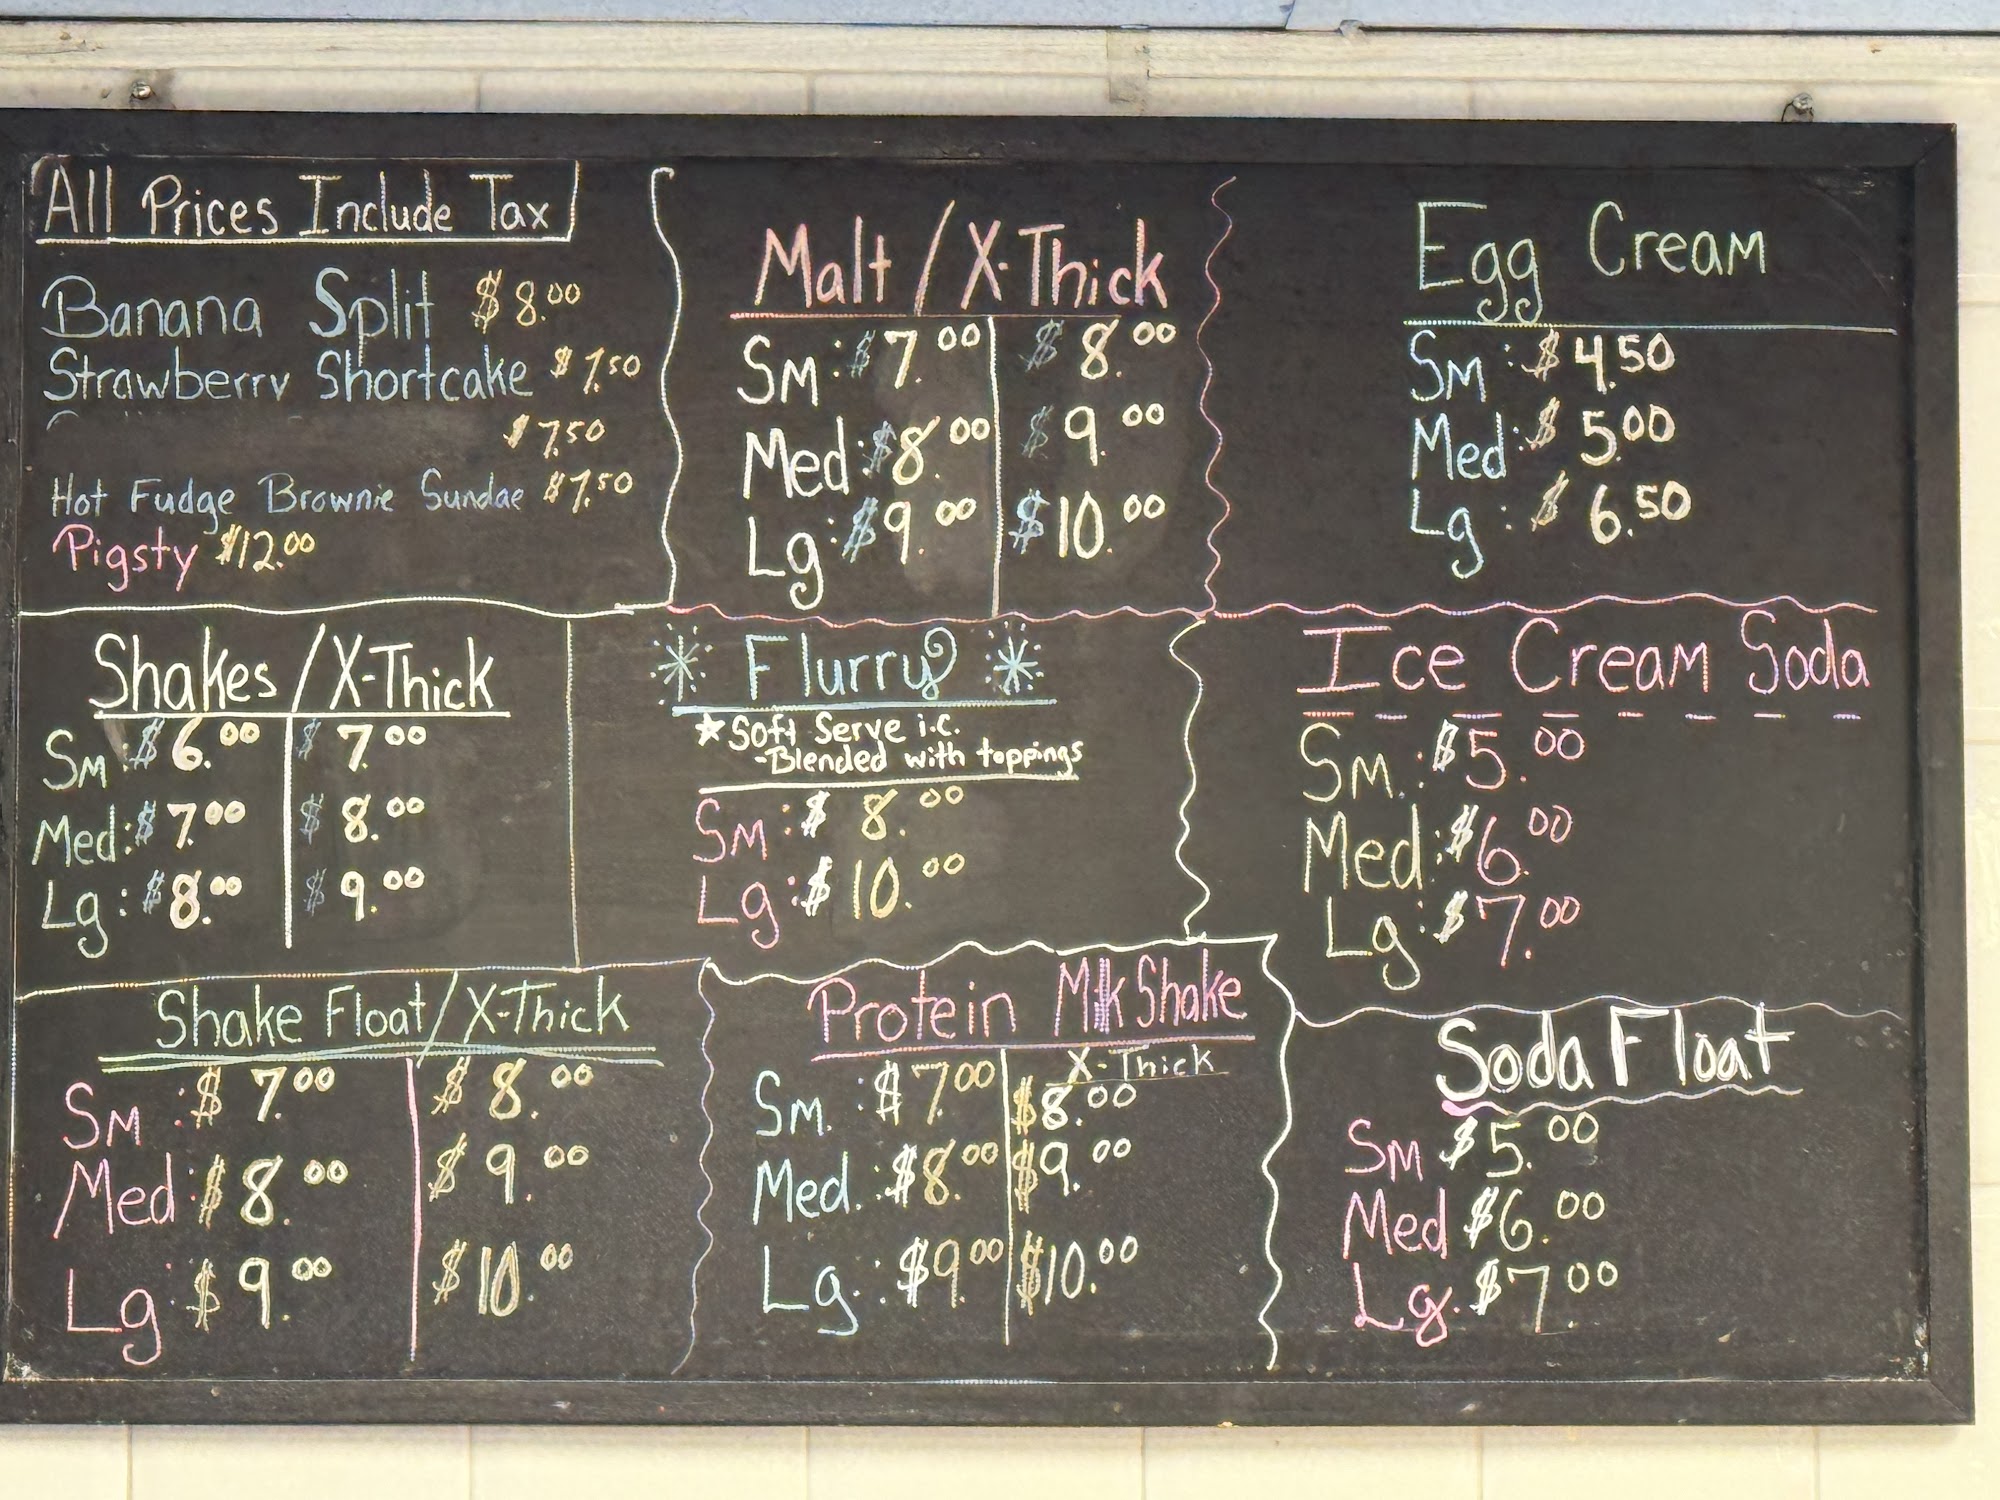 All Prices Include Tax
Banana Split $8.00
Strawberry Shortcake $7.50
$7.50
Hot Fudge Brownie Sundae $7.50
Pigsty $12.00
Malt / X-Thick
Sm: $7.00 $8.00
Med: $8.00 $9.00
Lg: $9.00 $10.00
Egg Cream
Sm: $4.50
Med: $5.00
Lg: $6.50
Shakes / X-Thick
Sm: $6.00 $7.00
Med: $7.00 $8.00
Lg: $8.00 $9.00
Flurry
★Soft Serve i.c.
-Blended with toppings
Sm: $8.00
Lg: $10.00
Ice Cream Soda
Sm: $5.00
Med: $6.00
Lg: $7.00
Shake Float / X-Thick
Sm: $7.00 $8.00
Med: $8.00 $9.00
Lg: $9.00 $10.00
Protein MilkShake
X-Thick
Sm: $7.00 $8.00
Med: $8.00 $9.00
Lg: $9.00 $10.00
Soda Float
Sm $5.00
Med $6.00
Lg. $7.00